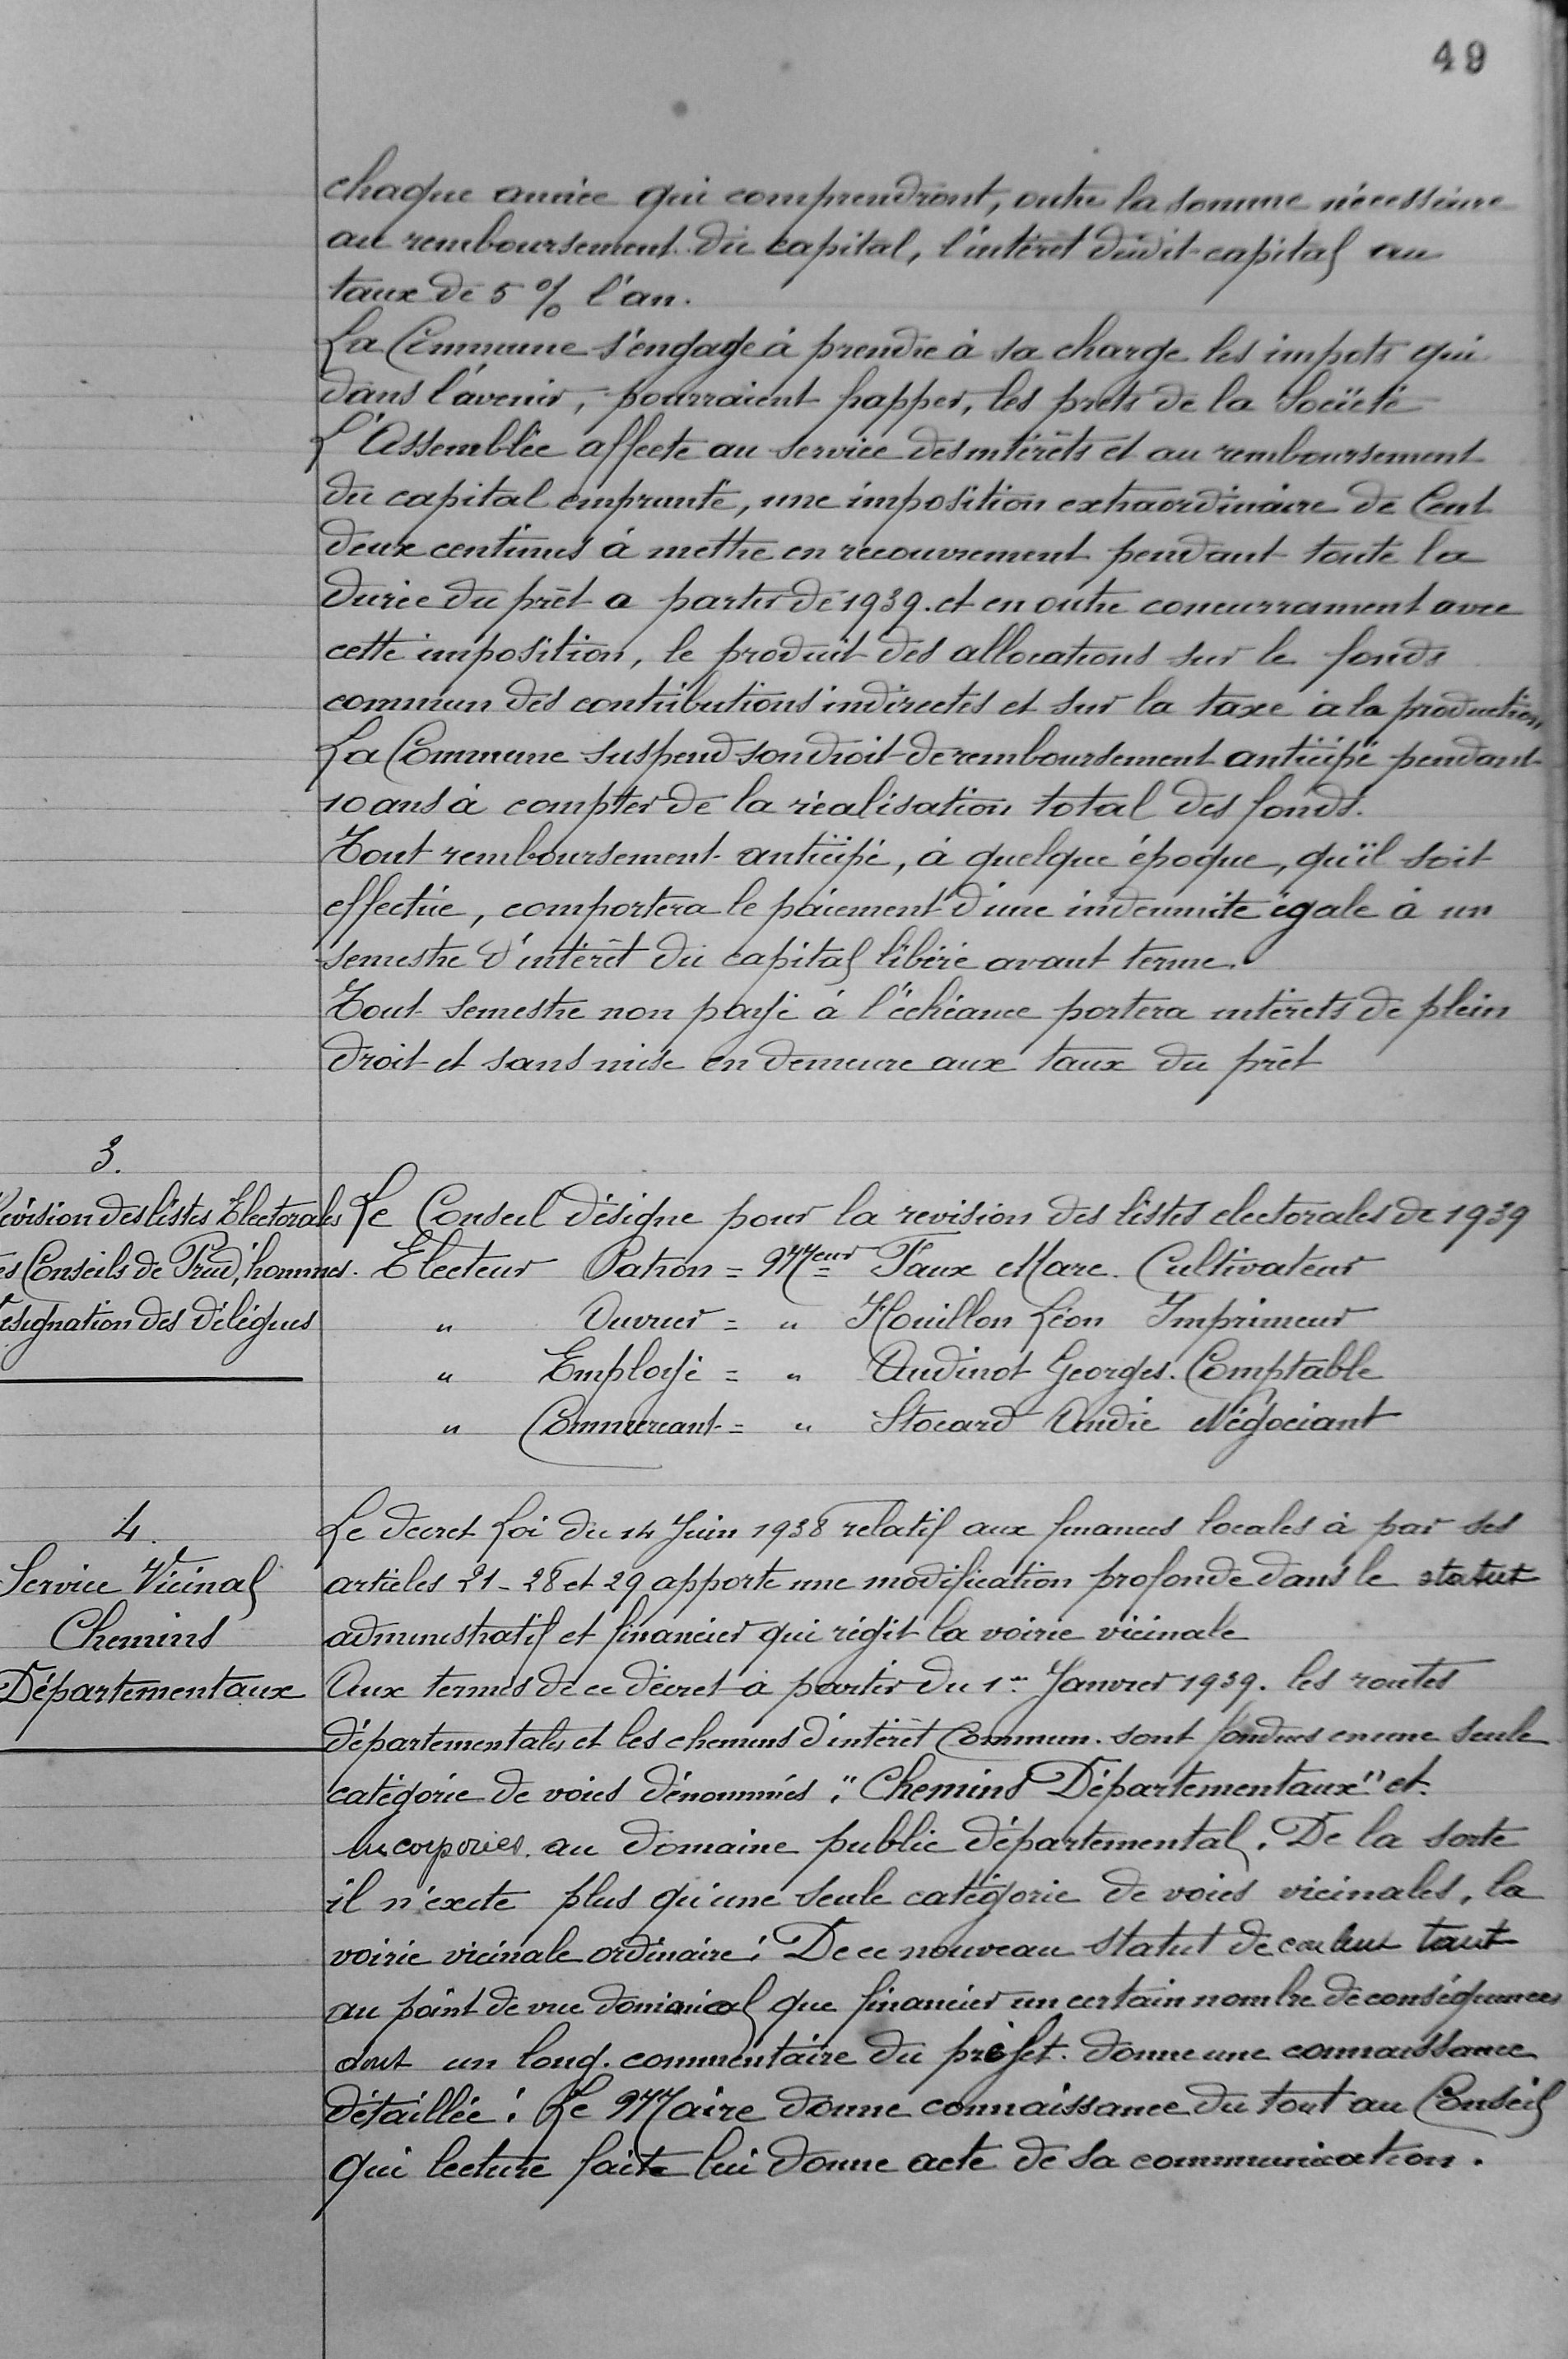 49
chaque année qui comprendront, outre la somme nécessaire
au remboursement du capital, l'intérêt dudit capital au
taux de 5 % l'an.
La Commune s'engage à prendre à sa charge les impots qui
dans l'avenir, pourraient frapper, les prets de la Société
L'Assemblée affecte au service des intérêts et au remboursement
du capital emprunté, une imposition extraordinaire de Cent
deux centimes à mettre en recouvrement pendant toute la
durée du prêt a partir de 1939. et en outre concurrament avec
cette imposition, le produit des allocations sur le fonds
commun des contributions indirectes et sur la taxe à la production,
La Commune suspend son droit de remboursement anticipé pendant
10 ans à compter de la réalisation total des fonds.
Tout remboursement anticipé, à quelque époque, qu'il soit
effectué, comportera le paiement d'une indemnité égale à un
semestre d'intérêt du capital libéré avant terme.
Tout semestre non payé à l'échéance portera intérets de plein
droit et sans mise en demeure aux taux du prêt
3.
Révision des listes Electorales
des Conseils de Prud'hommes.
Désignation des Délégués
Le Conseil désigne pour la revision des listes electorales de 1939
Electeur Patron = Meur Faux Marc. Cultivateur
" Ouvrier = " Houillon Léon Imprimeur
" Employé = " Audinot Georges. Comptable
" Commercant = " Stocard André Négociant
4.
Service Vicinal
Chemins
Départementaux
Le decret Loi du 14 Juin 1938 relatif aux finances locales à par ses
articles 21 - 28 et 29 apporte une modification profonde dans le statut
administratif et financier qui régit la voirie vicinale
Aux termes de ce décret à partir du 1er Janvier 1939. les routes
départementales et les chemins d'intérêt Commun. sont fondues en une seule
catégorie de voies dénommés " Chemins Départementaux" et
Incorporées. au domaine public départemental. De la sorte
il n'exite plus qu'une seule catégorie de voies vicinales, la
voirie vicinale ordinaire. De ce nouveau statut découlent tant
au point de vue domanical que financier un certain nombre de conséquences
dont un long. commentaire du préfet. donne une connaissance
détaillée. Le Maire donne connaissance du tout au Conseil
qui lecture faite lui donne acte de sa communication.